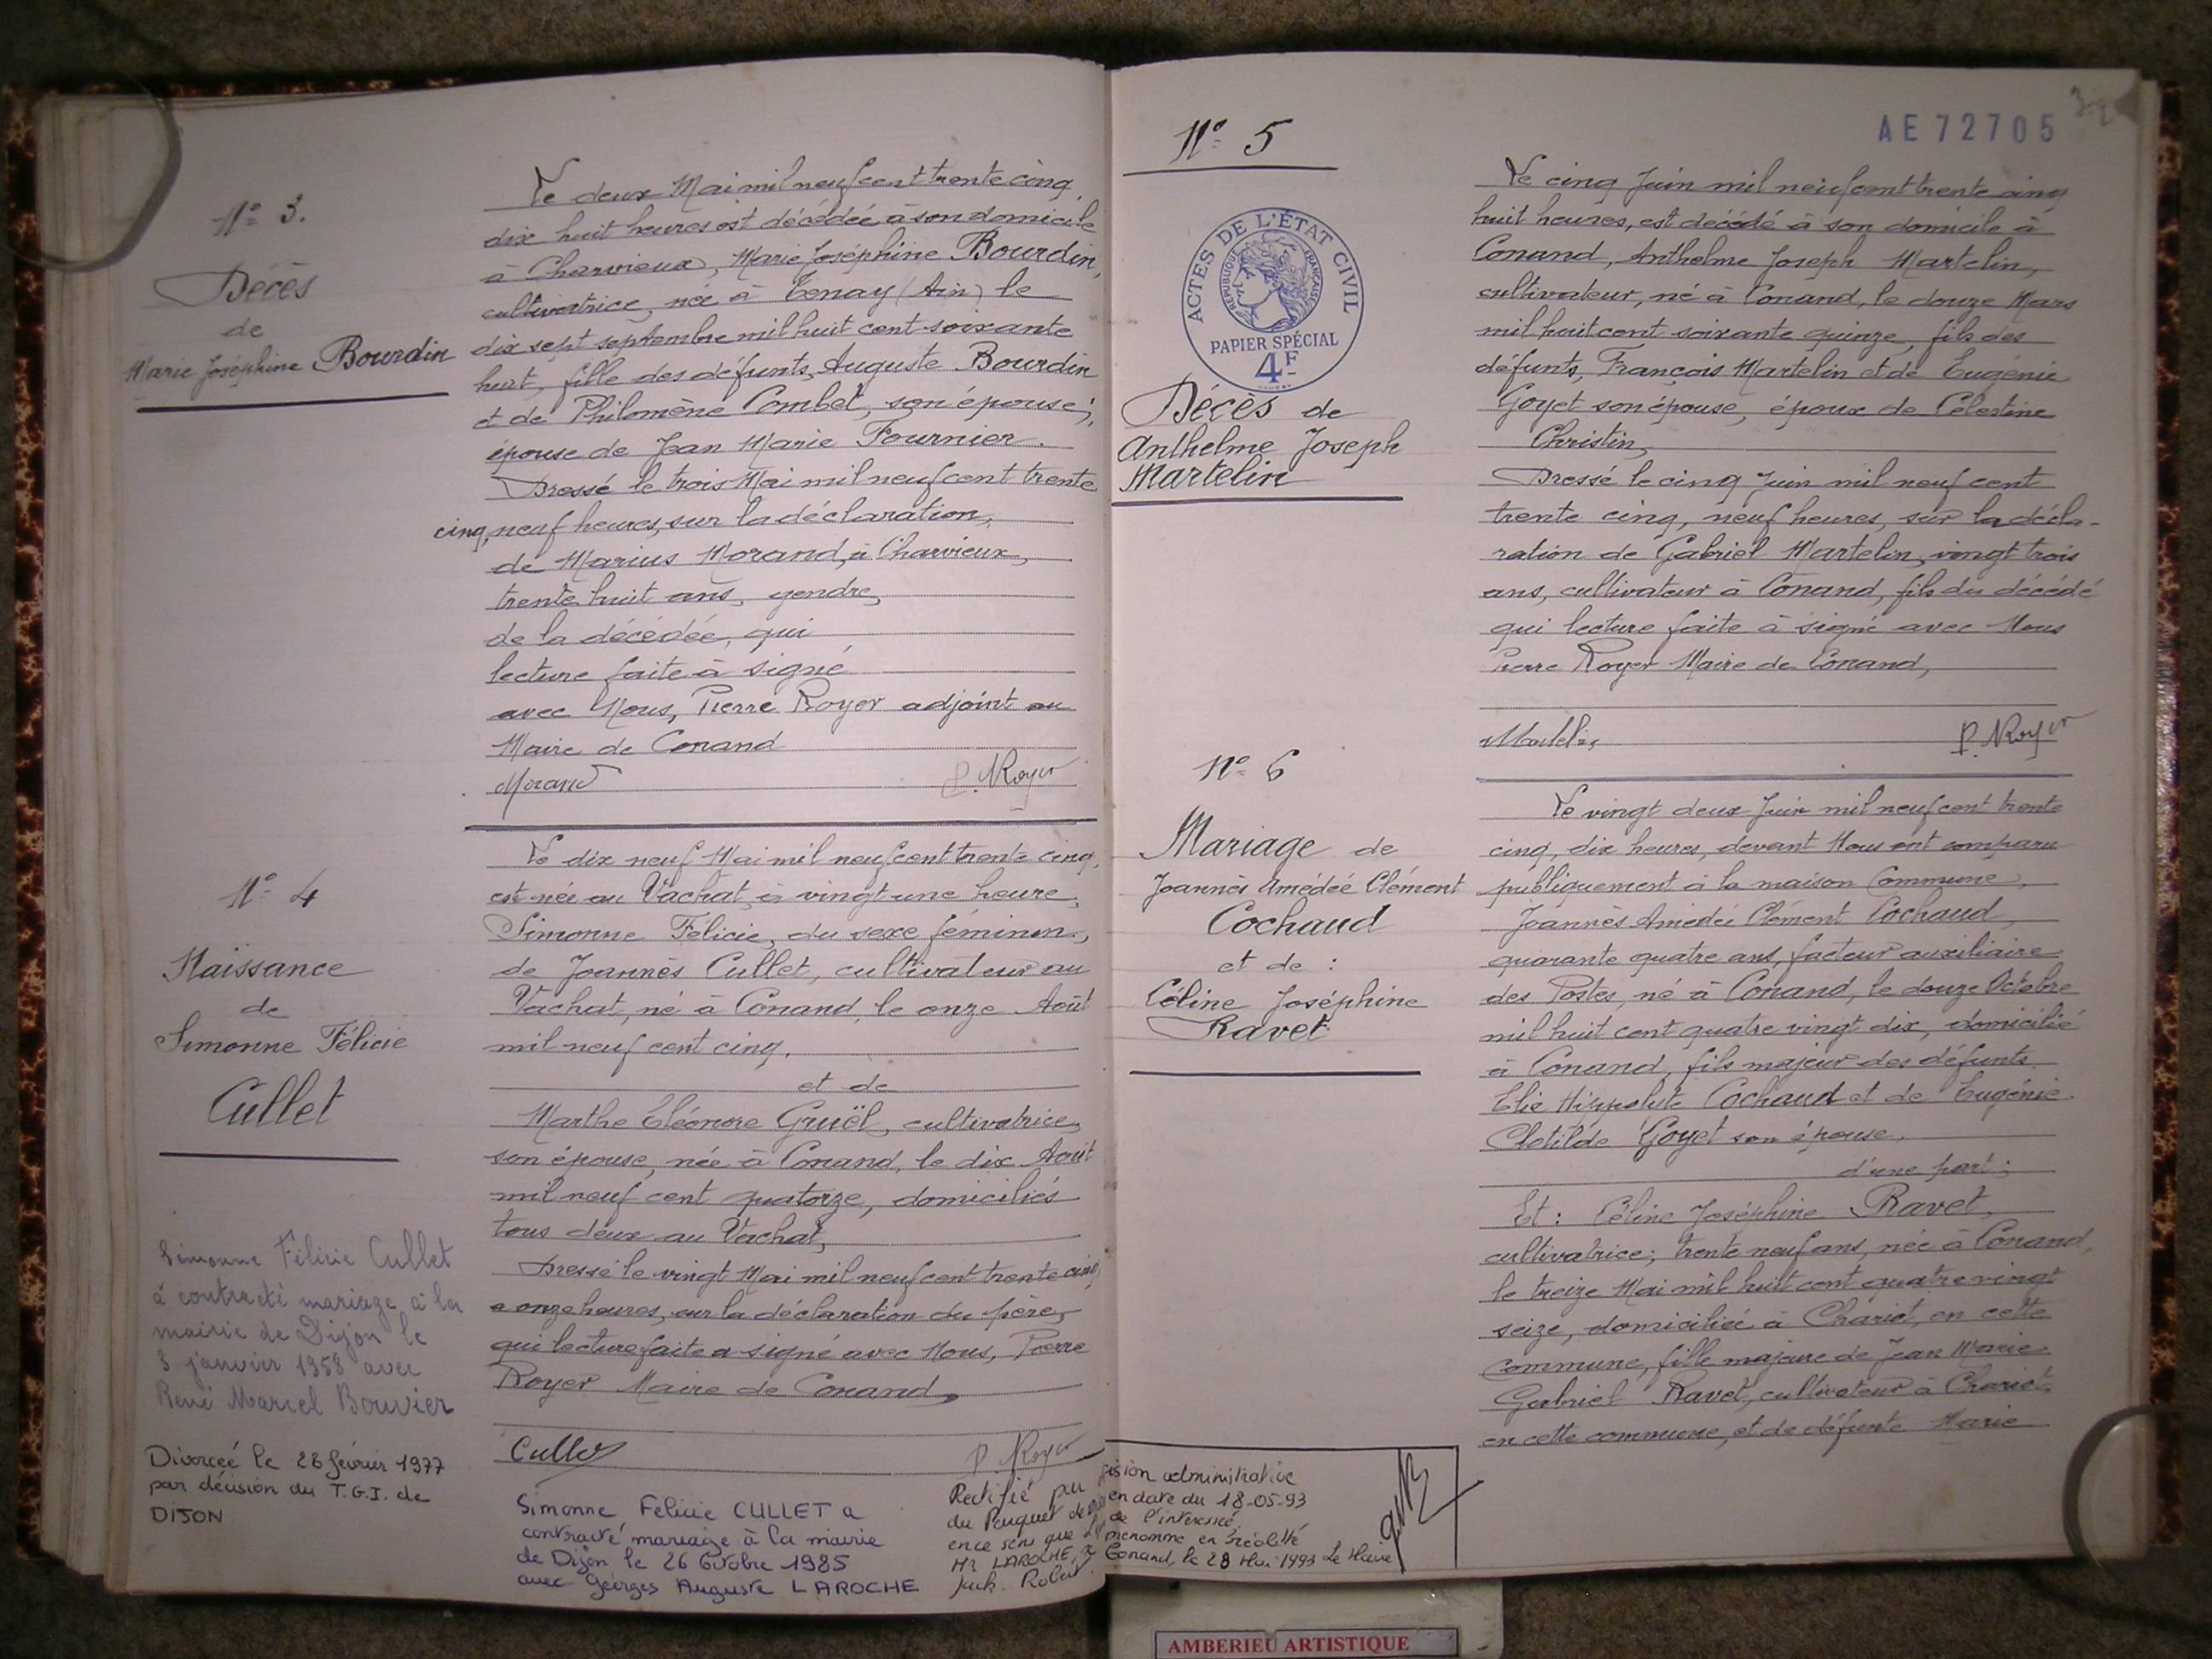 N° 3.
Décès
de
Marie Joséphine Bourdin
Le deux Mai mil neuf cent trente cinq,
dix huit heures est décédée à son domicile
à Charvieux, Marie Joséphine Bourdin,
cultivatrice, née à Tenay (Ain) le
dix sept septembre mil huit cent soixante
huit, fille des défunts, Auguste Bourdin
et de Philomène Combet, son épouse;
épouse de Jean Marie Fournier.
Dressé le trois Mai mil neuf cent trente
cinq, neuf heures, sur la déclaration,
de Marius Morand, à Charvieux,
trente huit ans, gendre,
de la décédée, qui
lecture faite à signé
avec Nous, Pierre Royer adjoint au
Maire de Conand
Morand P. Royer
N° 4
Naissance
de
Simonne Félicie
Cullet
Le dix neuf Mai mil neuf cent trente cinq,
est née au Vachat, à vingt une heure,
Simonne Félicie, du sexe féminin,
de Joannès Cullet, cultivateur au
Vachat, né à Conand, le onze Août
mil neuf cent cinq,
et de
Marthe Eléonore Gruël, cultivatrice,
son épouse, née à Conand, le dix Août
mil neuf cent quatorze, domiciliés
tous deux au Vachat,
Dressé le vingt Mai mil neuf cent trente cinq,
a onze heures, sur la déclaration du père,
qui lecture faite a signé avec Nous, Pierre
Royer Maire de Conand,
Cullet P. Royer
Simonne Félicie Cullet
à contracté mariage à la
mairie de Dijon le
3 janvier 1958 avec
René Marcel Bouvier
Divorcée le 28 février 1977
par décision du T.G.I. de
DIJON
Simonne Félicie CULLET a
contracté mariage à la mairie
de Dijon le 26 Octobre 1985
avec Georges Auguste LAROCHE
Rectifié par décision administrative
du Parquet en date du 18-05-93
en ce sens que de l'intéressé,
Mr LAROCHE, prénommé en réalité
Conand, le 28 Mai 1993 Le Maire
AE 72705
N° 5
ACTES DE L'ÉTAT CIVIL
RÉPUBLIQUE FRANÇAISE
PAPIER SPÉCIAL
4F
Décès de
Anthelme Joseph
Martelin
Le cinq Juin mil neuf cent trente cinq
huit heures, est décédé à son domicile à
Conand, Anthelme Joseph Martelin,
cultivateur, né à Conand, le douze Mars
mil huit cent soixante quinze, fils des
défunts, François Martelin et de Eugénie
Goyet son épouse, époux de Célestine
Christin,
Dressé le cinq Juin mil neuf cent
trente cinq, neuf heures, sur la décla-
ration de Gabriel Martelin, vingt trois
ans, cultivateur à Conand, fils du décédé
qui lecture faite à signé avec Nous
Pierre Royer Maire de Conand,
Martelin P. Royer
N° 6
Mariage de
Joannès Amédée Clément
Cochaud
et de :
Céline Joséphine
Ravet
Le vingt deux Juin mil neuf cent trente
cinq, dix heures, devant Nous ont comparu
publiquement à la maison Commune,
Joannès Amédée Clément Cochaud,
quarante quatre ans, facteur auxiliaire
des Postes, né à Conand, le douze Octobre
mil huit cent quatre vingt dix, domicilié
à Conand, fils majeur des défunts
Elie Hippolyte Cochaud et de Eugénie
Clotilde Goyet son épouse,
d'une part;
Et : Céline Joséphine Ravet,
cultivatrice; trente neuf ans, née à Conand,
le treize Mai mil huit cent quatre vingt
seize, domiciliée à Chariot, en cette
commune, fille majeure de Jean Marie
Gabriel Ravet, cultivateur à Chariot
en cette commune, et de défunte Marie
AMBERIEU ARTISTIQUE